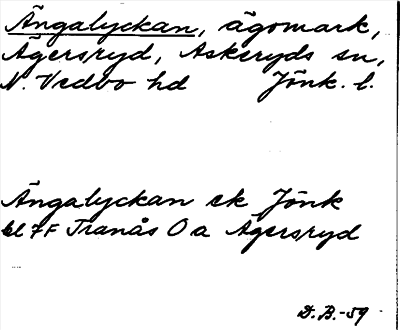 Ängalyckan, ägomark,
Agersryd, Askeryds sn,
N. Vedbo hd Jönk. l.
Ängalyckan ek Jönk
bl 7F Tranås O a Agersryd
D. B. -59